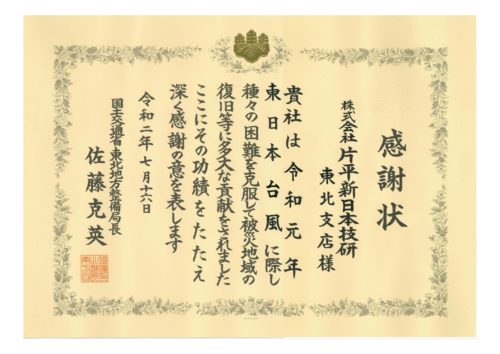 感謝状
株式会社 片平新日本技研
東北支店 様
貴社は令和元年
東日本台風に際し
種々の困難を克服して被災地域の
復旧等に多大な貢献をされました
ここにその功績をたたえ
深く感謝の意を表します
令和二年七月十六日
国土交通省東北地方整備局長
佐藤克英